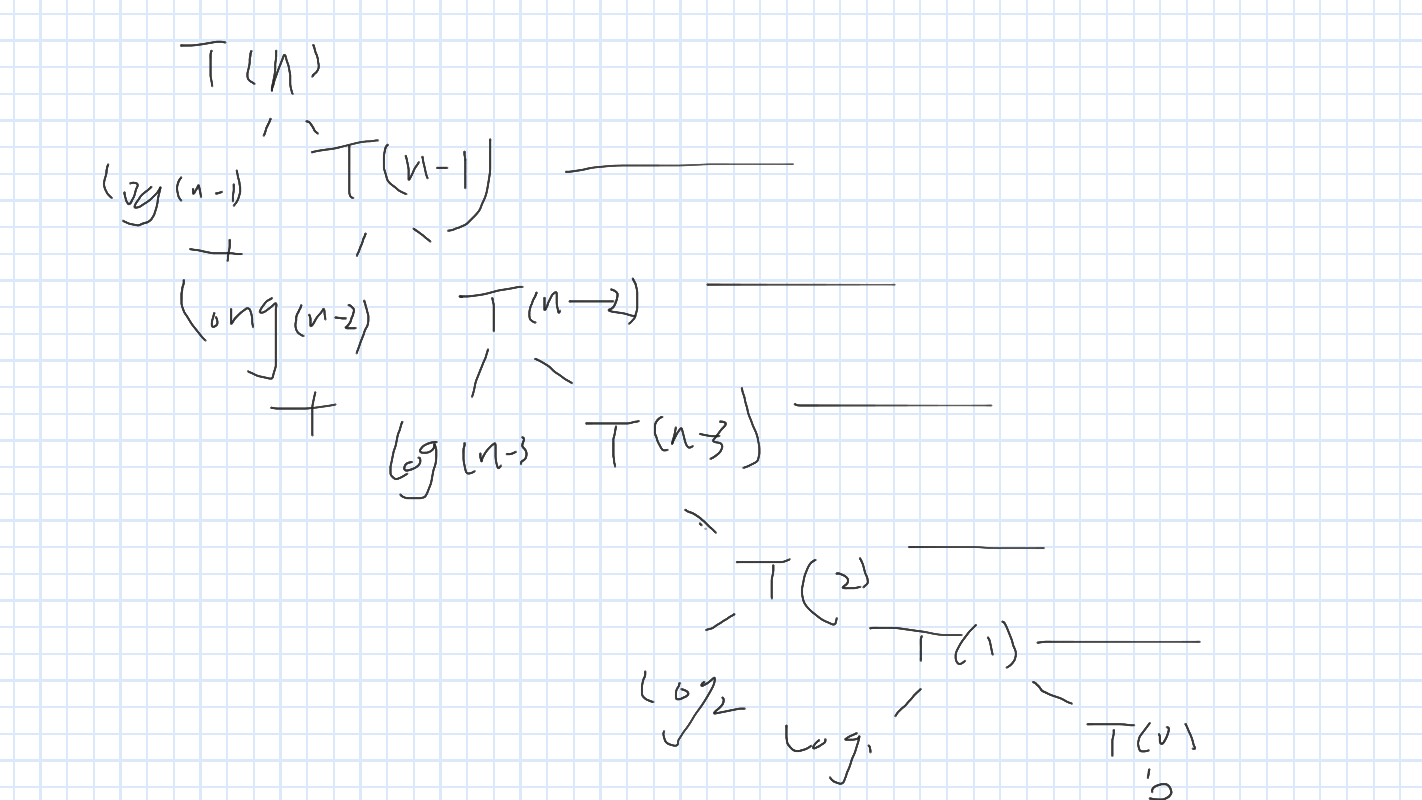 T(n)
log(n-1) T(n-1)
+
long(n-2) T(n-2)
+
log(n-3 T(n-3)
T(2)
T(1)
log2 log1 T(0)
0